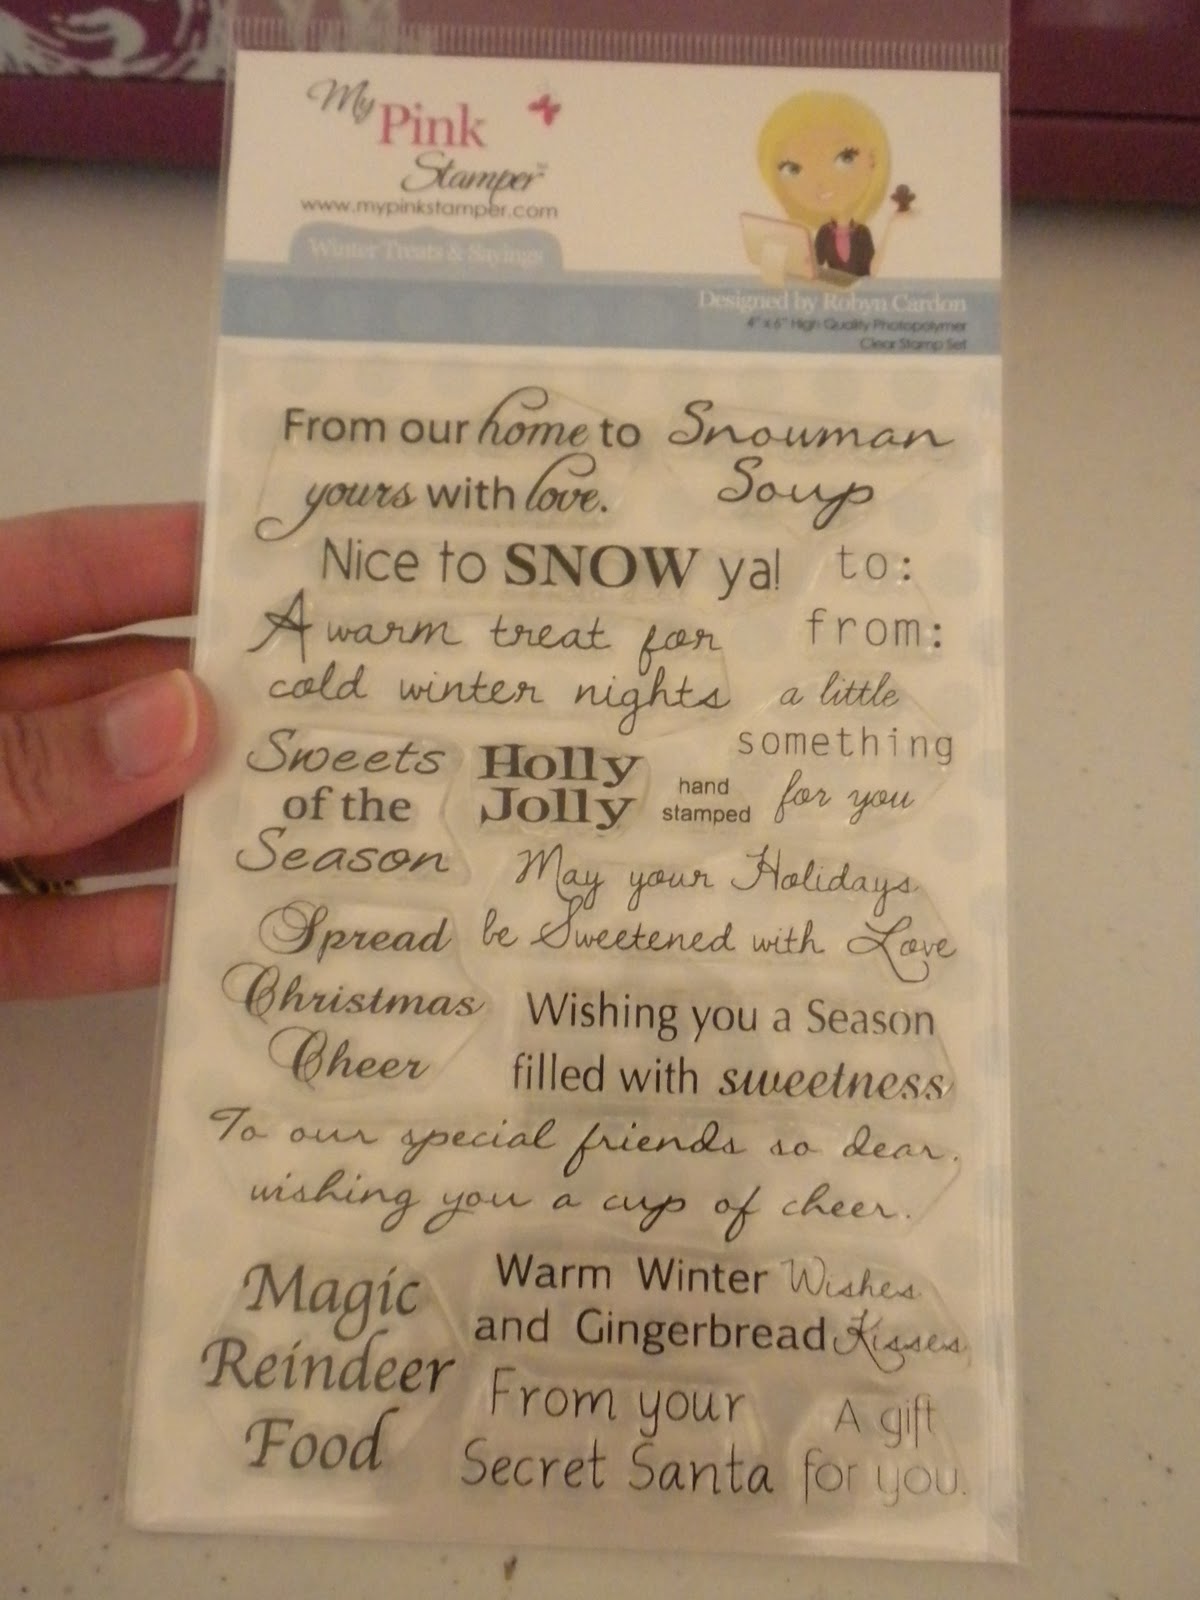 My
Pink
Stamper™
www.mypinkstamper.com
Winter Treats & Sayings
Designed by Robyn Cardon
4" x 6" High Quality Photopolymer
Clear Stamp Set
From our home to
yours with love.
Snowman
Soup
Nice to SNOW ya!
to:
from:
A warm treat for
cold winter nights
a little
something
for you
Sweets
of the
Season
Holly
Jolly
hand
stamped
May your Holidays
be Sweetened with Love
Spread
Christmas
Cheer
Wishing you a Season
filled with sweetness
To our special friends so dear,
wishing you a cup of cheer.
Magic
Reindeer
Food
Warm Winter Wishes
and Gingerbread Kisses
From your
Secret Santa
A gift
for you.